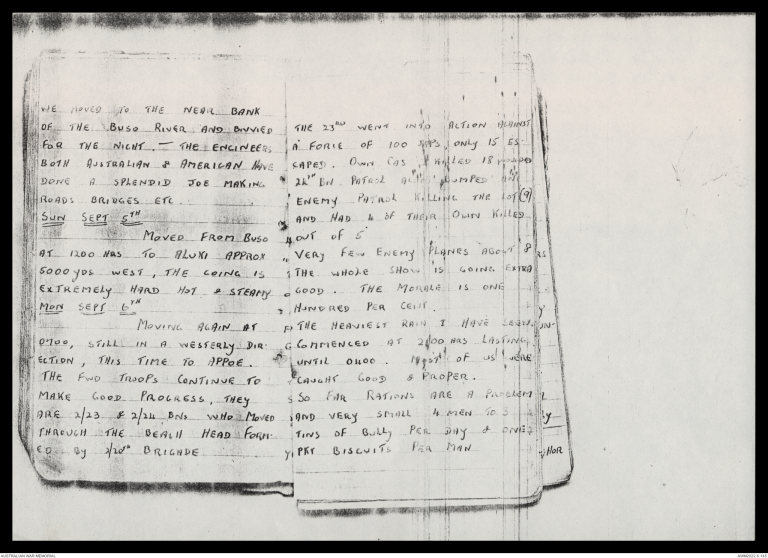 WE MOVED TO THE NEAR BANK
OF THE BUSO RIVER AND BIVVIED
FOR THE NIGHT. — THE ENGINEERS
BOTH AUSTRALIAN & AMERICAN HAVE
DONE A SPLENDID JOE MAKING
ROADS BRIDGES ETC
SUN SEPT 5TH
MOVED FROM BUSO
AT 1200 HRS TO ALUKI APPROX
5000 YDS WEST, THE GOING IS
EXTREMELY HARD HOT & STEAMY
MON SEPT 6TH
MOVING AGAIN AT
0700, STILL IN A WESTERLY DIR-
ECTION, THIS TIME TO APPOE.
THE FWD TROOPS CONTINUE TO
MAKE GOOD PROGRESS, THEY
ARE 2/23 & 2/24 BNS WHO MOVED
THROUGH THE BEACH HEAD FORM-
ED BY 2/20TH BRIGADE
THE 23RD WENT INTO ACTION AGAINST
A FORCE OF 100 ONLY 15 ES-
CAPED. OWN CAS KILLED 18
24TH BN PATROL
ENEMY PATROL KILLING THE LOT (9)
AND HAD 4 OF THEIR OWN KILLED
OUT OF 5
VERY FEW ENEMY PLANES ABOUT &
THE WHOLE SHOW IS GOING EXTRA
GOOD. THE MORALE IS ONE
HUNDRED PER CENT.
THE HEAVIEST RAIN I HAVE SEEN
COMMENCED AT 2100 HRS LASTING
UNTIL 0400. MOST OF US WERE
CAUGHT GOOD & PROPER.
SO FAR RATIONS ARE A PROBLEM
AND VERY SMALL 4 MEN TO 3
TINS OF BULLY PER DAY & ONE
PKT BISCUITS PER MAN
AUSTRALIAN WAR MEMORIAL